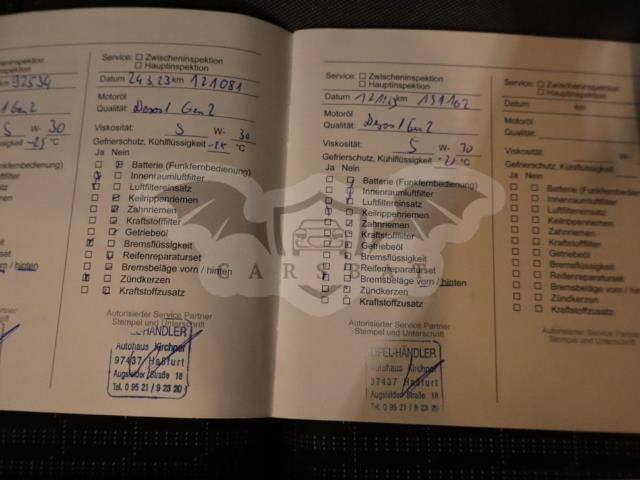 92534
W- 30
-25 °C
Service: □ Zwischeninspektion
□ Hauptinspektion
Datum 24.3.23 km 121081
Motoröl
Qualität: Dexos1 Gen2
Viskosität: 5 W- 30
Gefrierschutz, Kühlflüssigkeit -25 °C
Ja Nein
Batterie (Funkfernbedienung)
Innenraumluftfilter
Luftfiltereinsatz
Keilrippenriemen
Zahnriemen
Kraftstofffilter
Getriebeöl
Bremsflüssigkeit
Reifenreparaturset
Bremsbeläge vorn / hinten
Zündkerzen
Kraftstoffzusatz
Autorisierter Service Partner
Stempel und Unterschrift
HÄNDLER
Autohaus Kirchner
97437 Haßfurt
Augsfelder Straße 18
Tel. 0 95 21 / 9 23 20
Service: □ Zwischeninspektion
□ Hauptinspektion
Datum km
Motoröl
Qualität: Dexos1 Gen2
Viskosität: 5 W- 30
Gefrierschutz, Kühlflüssigkeit °C
Ja Nein
Batterie (Funkfernbedienung)
Innenraumluftfilter
Luftfiltereinsatz
Keilrippenriemen
Zahnriemen
Kraftstofffilter
Getriebeöl
Bremsflüssigkeit
Reifenreparaturset
Bremsbeläge vorn / hinten
Zündkerzen
Kraftstoffzusatz
Autorisierter Service Partner
Stempel und Unterschrift
OPEL-HÄNDLER
Autohaus Kirchner
97437 Haßfurt
Augsfelder Straße 18
Tel. 0 95 21 / 9 23 20
Service: □ Zwischeninspektion
□ Hauptinspektion
Datum km
Motoröl
Qualität:
Viskosität: W-
Gefrierschutz, Kühlflüssig
Ja Nein
Batterie (Funkfernbe
Innenraumluftfilter
Luftfiltereinsatz
Keilrippenriemen
Zahnriemen
Kraftstofffilter
Getriebeöl
Bremsflüssigkeit
Reifenreparaturset
Bremsbeläge vorn / h
Zündkerzen
Kraftstoffzusatz
Autorisierter Service Par
Stempel und Unterschr
CARSBAT